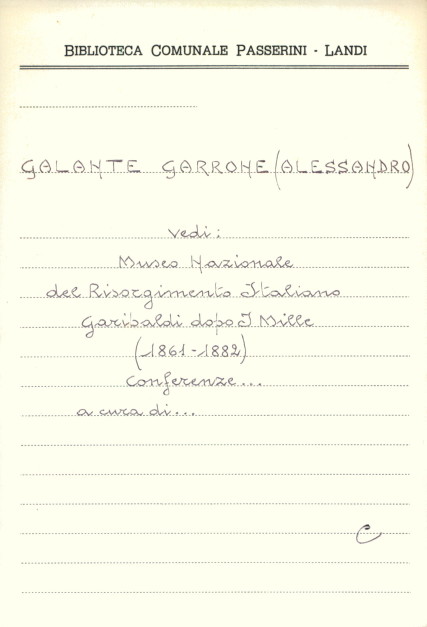 BIBLIOTECA COMUNALE PASSERINI - LANDI
GALANTE GARRONE (ALESSANDRO)
vedi:
Museo Nazionale
del Risorgimento Italiano
Garibaldi dopo I Mille
(1861-1882)
Conferenze...
a cura di...
C